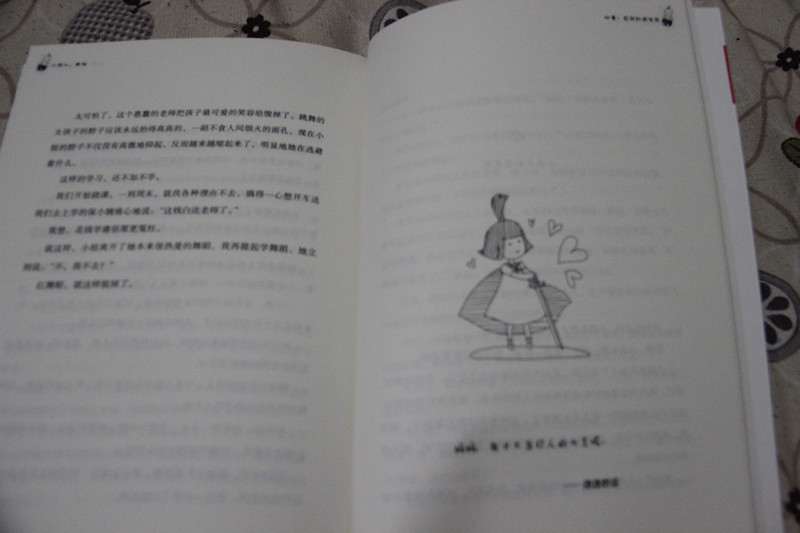 太可怕了，这个愚蠢的老师把孩子最可爱的笑容给毁掉了，跳舞的
女孩子的脖子应该永远抬得高高的，一副不食人间烟火的面孔，现在小
姐的脖子不仅没有高傲地仰起，反而越来越缩起来了，明显地她在逃避
着什么。
这样的学习，还不如不学。
我们开始逃课，一到周末，就找各种理由不去，搞得一心想开车送
我们去上学的保小姨痛心地说：“这钱白送老师了。”
我想，花钱学庸俗那更冤枉。
就这样，小姐离开了她本来很热爱的舞蹈，我再提起学舞蹈，她立
刻说：“不，我不去！”
后舞蹈，就这样毁掉了。